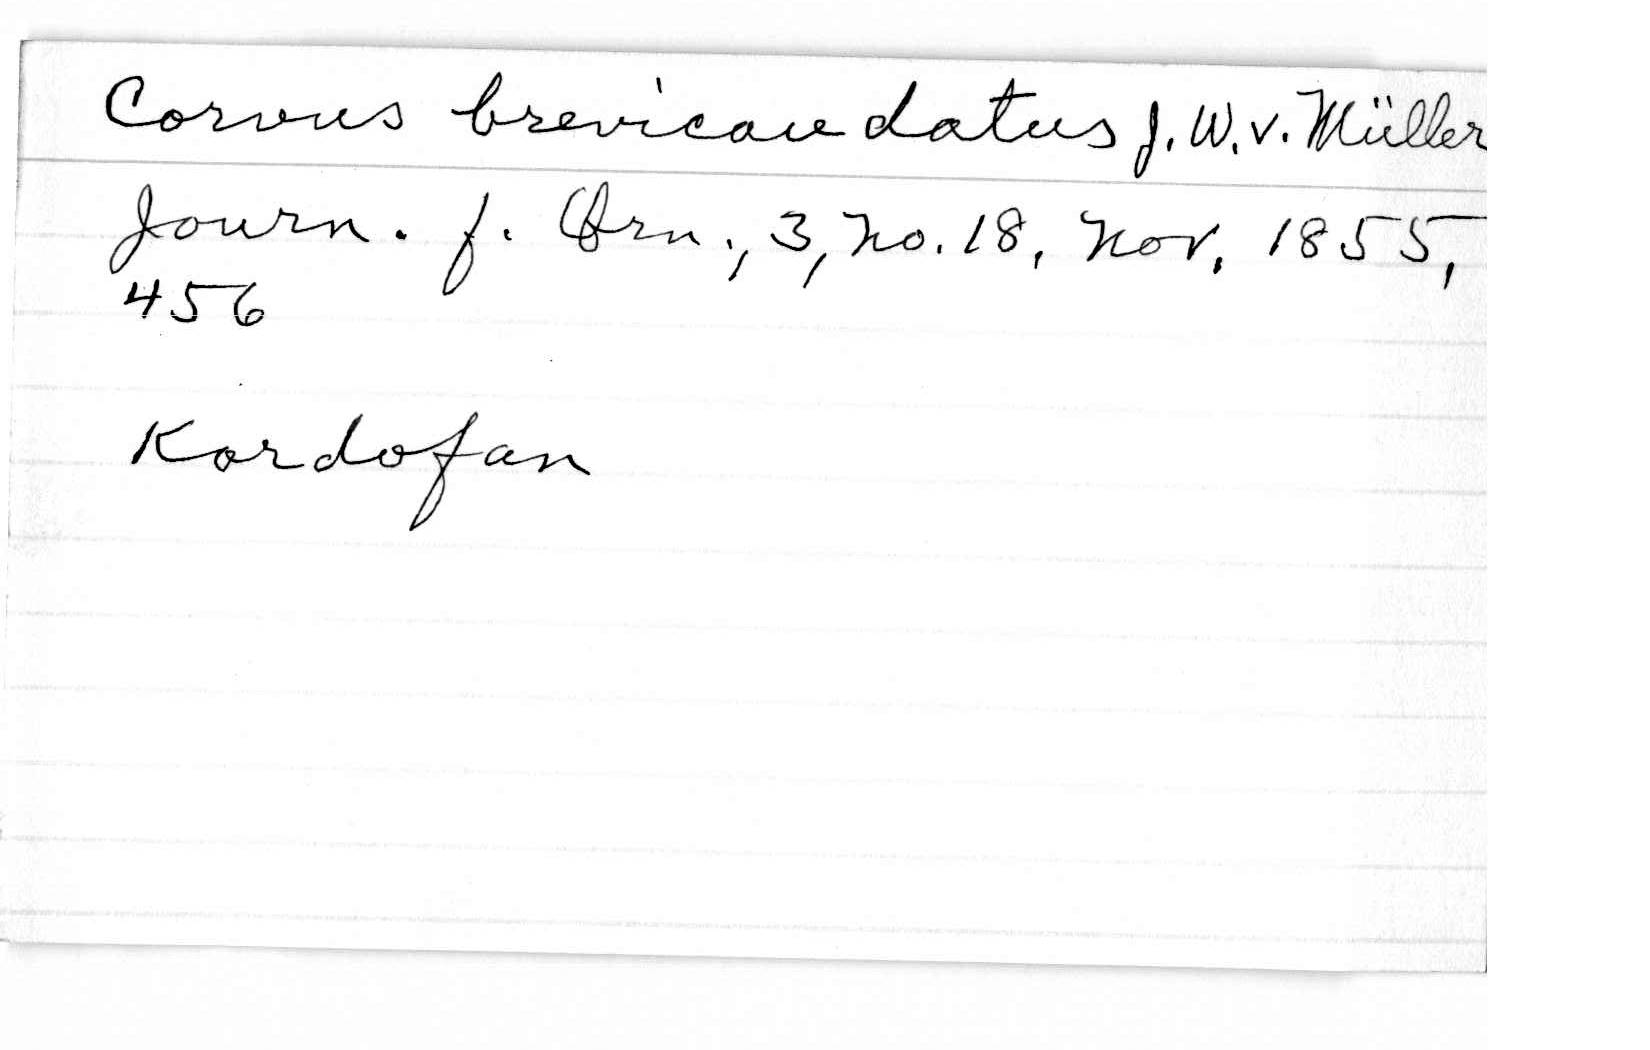 Corvus brevicaudatus J. W. v. Müller
Journ. f. Orn., 3, no. 18, Nov, 1855,
456
Kordofan